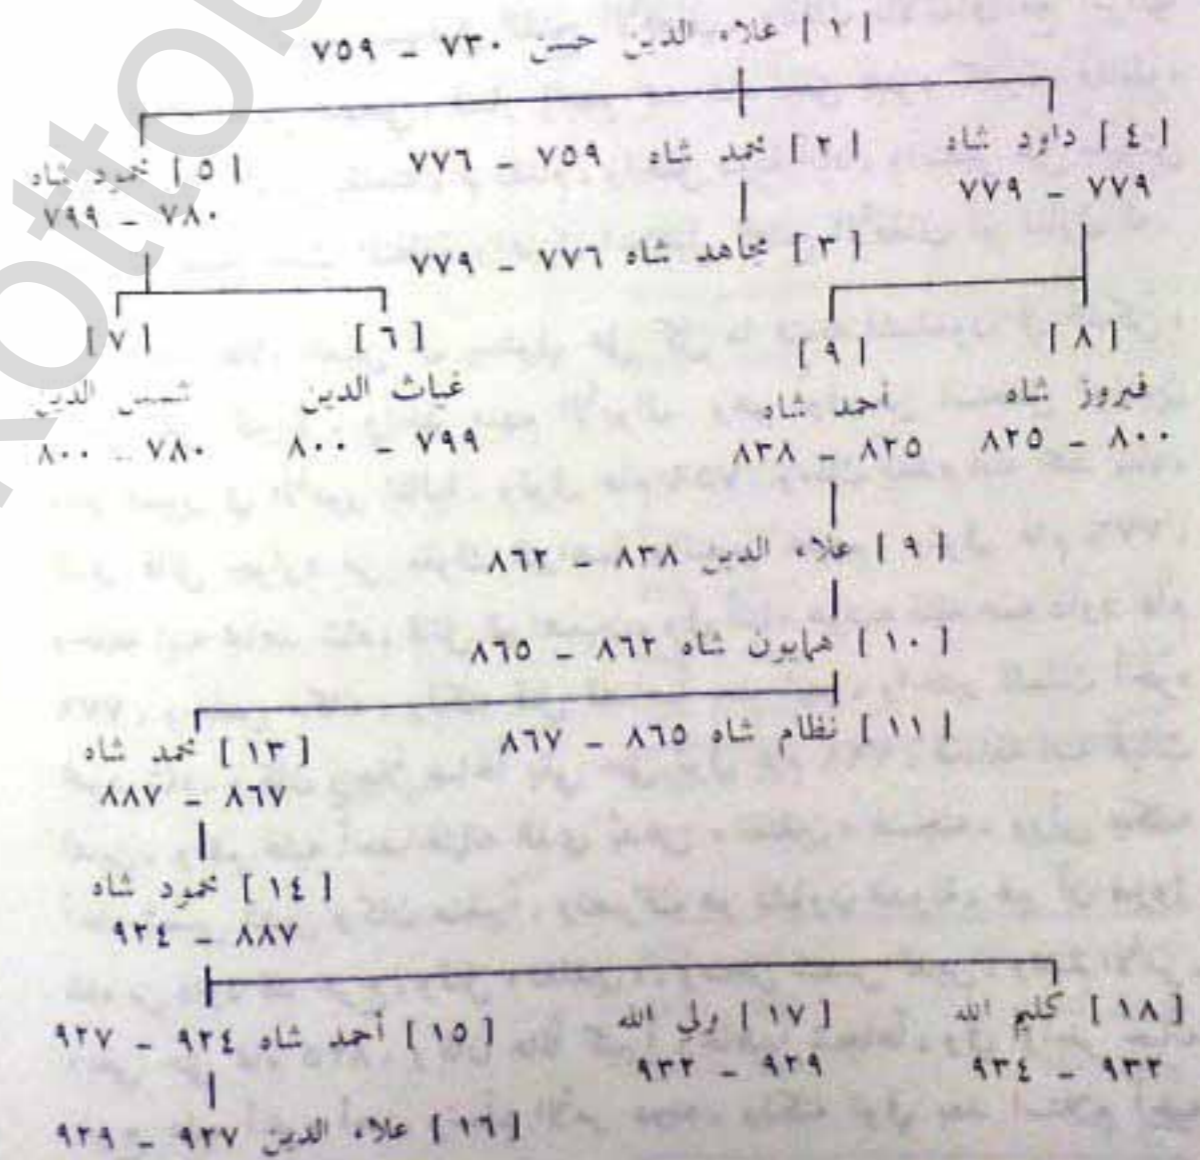 [ ١ ] علاء الدين حسن ٧٣٠ - ٧٥٩
[ ٤ ] داود شاه
٧٧٩ - ٧٧٩
[ ٢ ] محمد شاه ٧٥٩ - ٧٧٦
[ ٥ ] محمود شاه
٧٨٠ - ٧٩٩
[ ٣ ] مجاهد شاه ٧٧٦ - ٧٧٩
[ ٨ ]
فيروز شاه
٨٠٠ - ٨٢٥
[ ٩ ]
أحمد شاه
٨٢٥ - ٨٣٨
[ ٦ ]
غياث الدين
٧٩٩ - ٨٠٠
[ ٧ ]
شمس الدين
٧٨٠ - ٨٠٠
[ ٩ ] علاء الدين ٨٣٨ - ٨٦٢
[ ١٠ ] همايون شاه ٨٦٢ - ٨٦٥
[ ١١ ] نظام شاه ٨٦٥ - ٨٦٧
[ ١٣ ] محمد شاه
٨٦٧ - ٨٨٧
[ ١٤ ] محمود شاه
٨٨٧ - ٩٢٤
[ ١٨ ] كليم الله
٩٣٢ - ٩٣٤
[ ١٧ ] ولي الله
٩٢٩ - ٩٣٢
[ ١٥ ] أحمد شاه ٩٢٤ - ٩٢٧
[ ١٦ ] علاء الدين ٩٢٧ - ٩٢٩